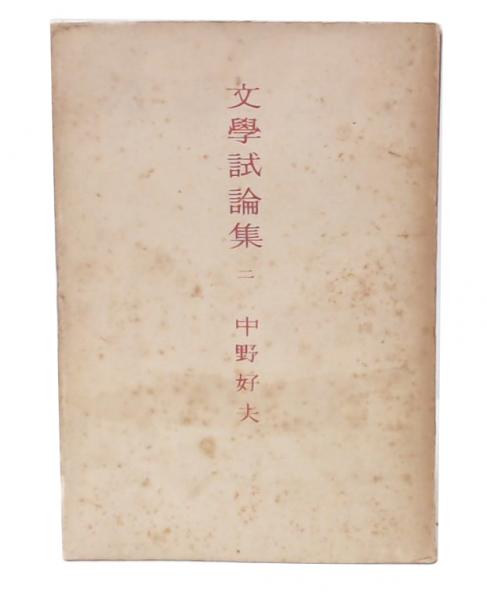 文學試論集 二 中野好夫